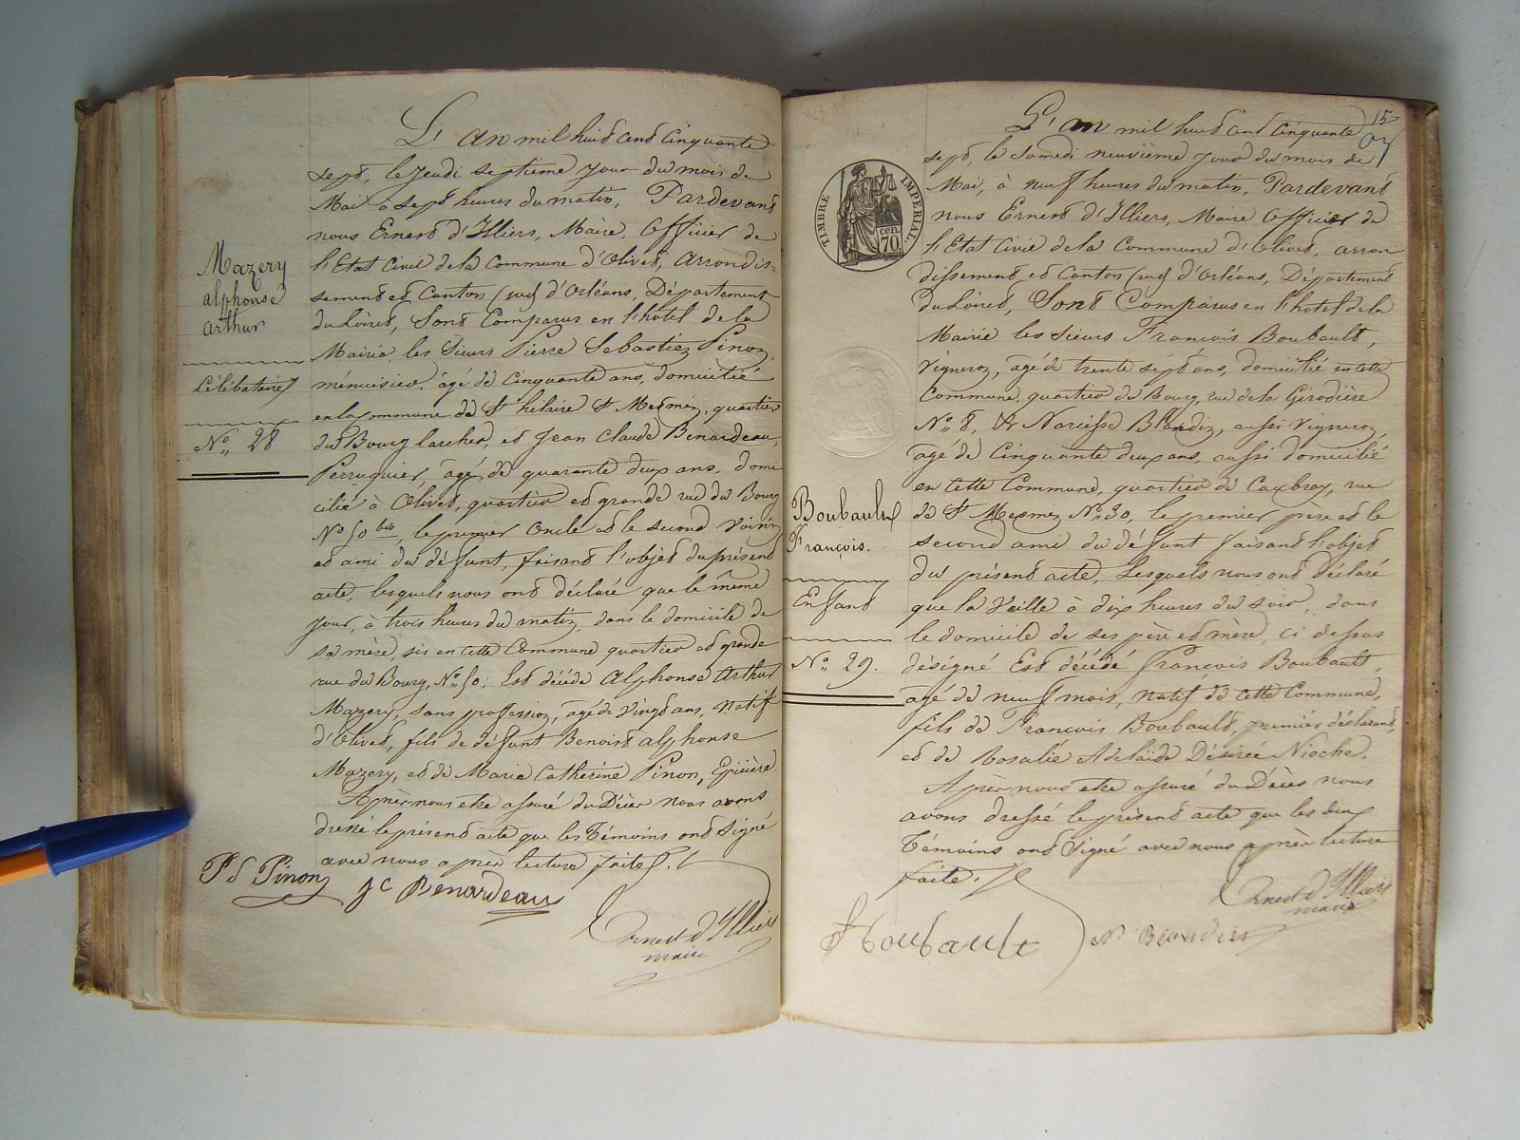 Mazery
alphonse
arthur
Célibataire
No. 28
L'an mil huit cent cinquante
sept, le Jeudi septieme jour du mois de
Mai à sept heures du matin, Pardevant
nous Ernest d'Illiers, Maire, Officier de
l'Etat Civil de la Commune d'Olivet, Arrondis-
sement et Canton (sud) d'Orléans, Département
du Loiret, Sont Comparus en l'hotel de la
Mairie, les Sieurs Pierre Sebastien Pinon,
ménuisier, âgé de Cinquante ans, domicilié
en la commune de St hilaire St Mesmin, quartier
du Bourg l'archer, et Jean Claude Benardeau,
Perruquier, âgé de quarante deux ans, domi
cilié à Olivet, quartier et grande rue du Bourg
No 50 bis, le premier Oncle et le second Voisin
et ami du défunt, faisant l'objet du présent
acte, lesquels nous ont déclaré que le même
jour, à trois heures du matin, dans le domicile de
sa mère, sis en cette Commune quartier et grande
rue du Bourg, No 50. Est décédé Alphonse Arthur
Mazery, sans profession, âgé de Vingt ans, natif
d'Olivet, fils de défunt Benoist alphonse
Mazery, et de Marie Catherine Pinon, Epicière
Après nous etre assuré du Décès nous avons
dressé le présent acte que les Témoins ont Signé
avec nous après lecture faite.
PS Pinon
JC Benardeau
Ernest d'Illiers
maire
15
TIMBRE IMPERIAL
CEN.
70
Boubault
François.
Enfant
No. 29.
L'an mil huit cent cinquante
sept, le Samedi neuvième jour du mois de
Mai, à neuf heures du matin, Pardevant
nous Ernest d'Illiers, Maire Officier de
l'Etat Civil de la Commune d'Olivet, arron
dissement et Canton (sud) d'Orléans, Département
du Loiret, Sont Comparus en l'hotel de la
Mairie les Sieurs François Boubault,
Vigneron, agé de trente sept ans, domicilié en cette
Commune, quartier du Bourg, rue de la Girodière
No 8, & Narcisse Blondin, aussi Vigneron,
agé de Cinquante deux ans, aussi domicilié
en cette Commune, quartier de Caubray, rue
de St Mesmin No 30, le premier pere et le
second ami du défunt faisant l'objet
du présent acte, Lesquels nous ont déclaré
que la Veille à dix heures du soir, dans
le domicile de ses père et mère, ci dessus
désigné Est décédé François Boubault,
agé de neuf mois, natif de cette Commune,
fils de François Boubault, premier déclarant,
et de Rosalie Adelaïde Désirée Nioche.
Après nous etre assuré du Décès nous
avons dressé le présent acte que les deux
Témoins ont Signé avec nous après lecture
faite.
Boubault
Ernest d'Illiers
maire